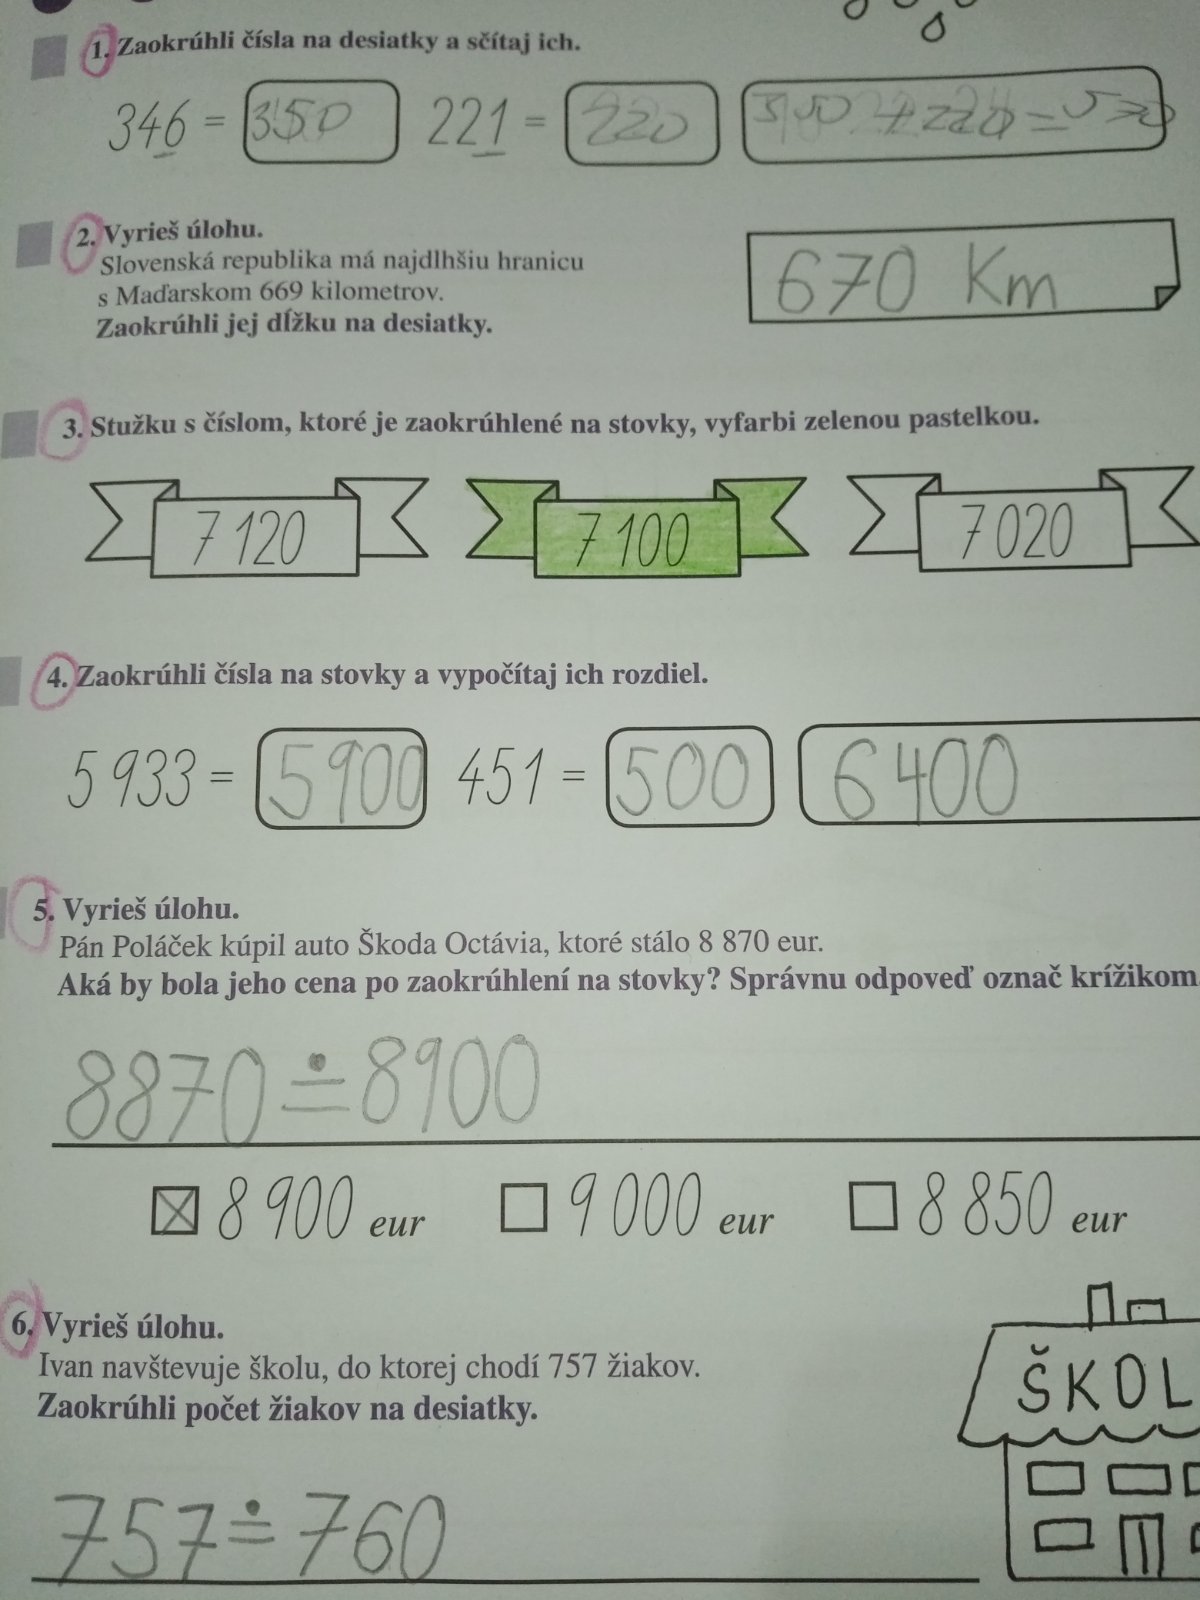 1. Zaokrúhli čísla na desiatky a sčítaj ich.
346 = 350 221 = 220 350 + 220 = 570
2. Vyrieš úlohu.
Slovenská republika má najdlhšiu hranicu
s Maďarskom 669 kilometrov.
Zaokrúhli jej dĺžku na desiatky.
670 Km
3. Stužku s číslom, ktoré je zaokrúhlené na stovky, vyfarbi zelenou pastelkou.
7 120 7 100 7 020
4. Zaokrúhli čísla na stovky a vypočítaj ich rozdiel.
5 933 = 5900 451 = 500 6400
5. Vyrieš úlohu.
Pán Poláček kúpil auto Škoda Octávia, ktoré stálo 8 870 eur.
Aká by bola jeho cena po zaokrúhlení na stovky? Správnu odpoveď označ krížikom.
8870 ≐ 8900
8 900 eur 9 000 eur 8 850 eur
6. Vyrieš úlohu.
Ivan navštevuje školu, do ktorej chodí 757 žiakov.
Zaokrúhli počet žiakov na desiatky.
ŠKOL
757 ≐ 760